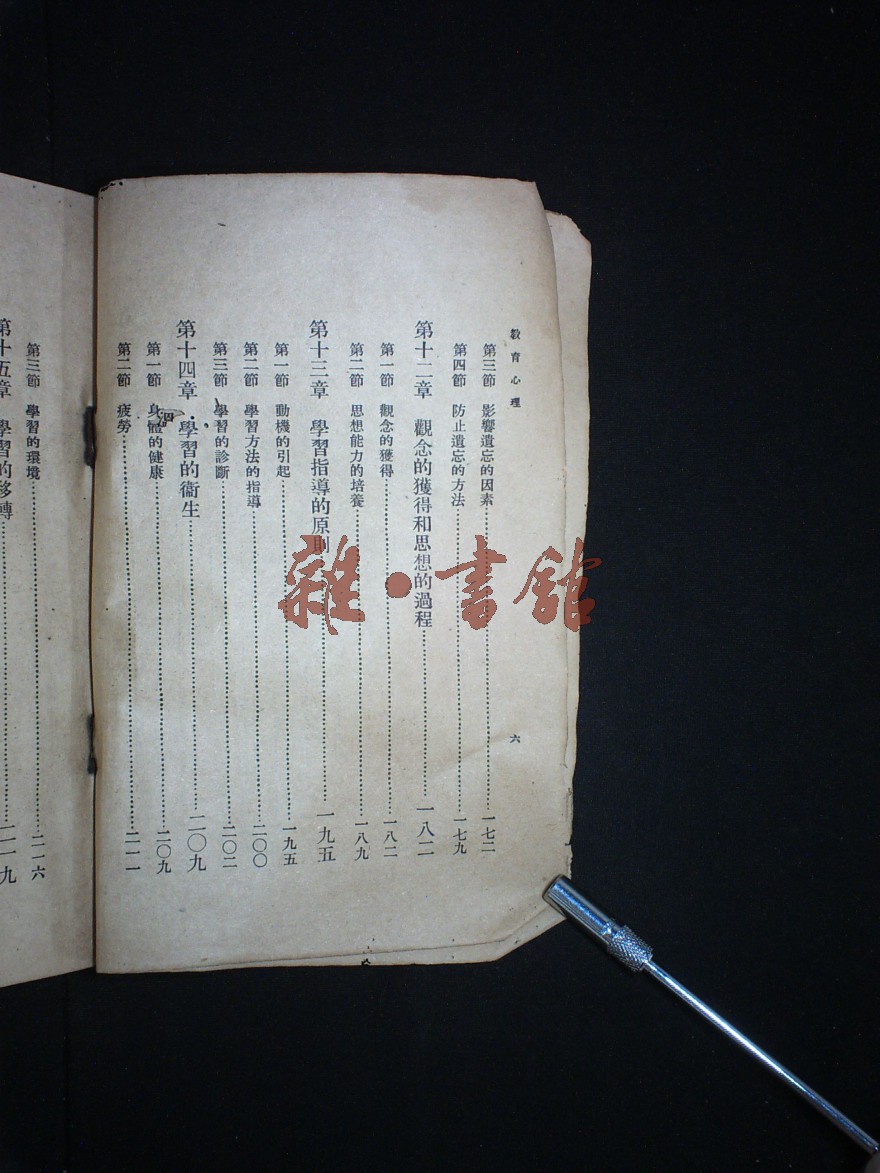 教育心理
六
第三節 影響遺忘的因素 一七二
第四節 防止遺忘的方法 一七九
第十二章 觀念的獲得和思想的過程 一八二
第一節 觀念的獲得 一八二
第二節 思想能力的培養 一八九
第十三章 學習指導的原則 一九五
第一節 動機的引起 一九五
第二節 學習方法的指導 二〇〇
第三節 學習的診斷 二〇二
第十四章 學習的衞生 二〇九
第一節 身體的健康 二〇九
第二節 疲勞 二一一
第三節 學習的環境 二一六
第十五章 學習的移轉 二一九
雜·書館